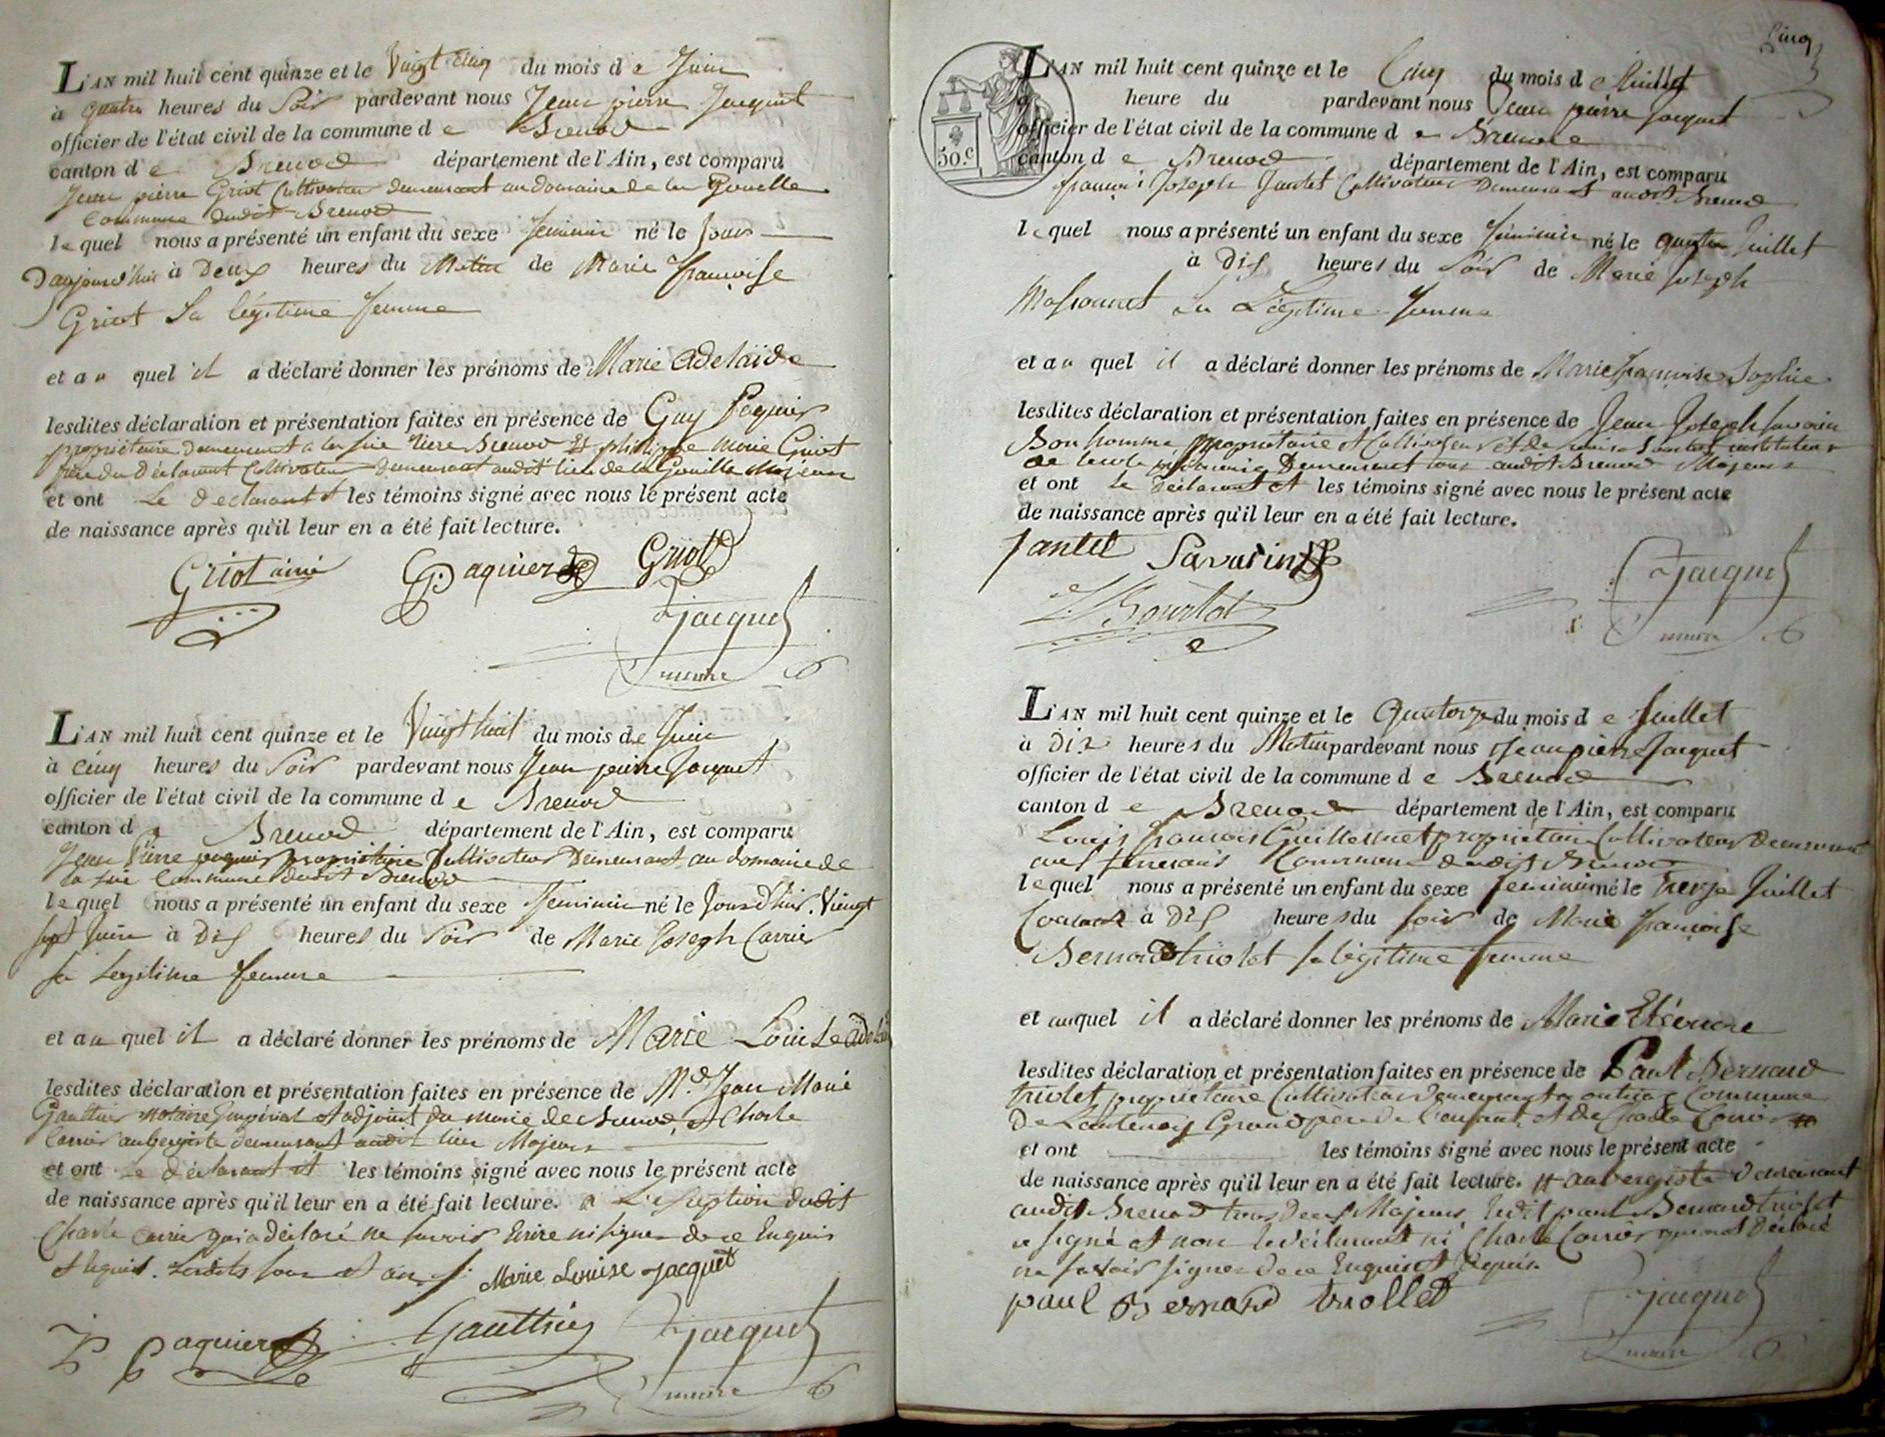 L'AN mil huit cent quinze et le Vingt cinq du mois d e Juin
à quatre heures du Soir pardevant nous Jean pierre Jacquet
officier de l'état civil de la commune d e Brenod
canton d e Brenod département de l'Ain, est comparu
Jean pierre Griot Cultivateur demeurant au domaine de la Gouille
Commune dudit Brenod
le quel nous a présenté un enfant du sexe feminin né le Jour
D'aujourd'hui à Deux heures du Matin de Marie françoise
Griot Sa légitime femme
et au quel il a déclaré donner les prénoms de Marie adelaïde
lesdites déclaration et présentation faites en présence de Guy Paquier
propriétaire demeurant a la Brenod Et philippe Marie Griot
du Déclarant Cultivateur Demeurant audit lieu de la Gouille Majeurs
et ont Le declarant et les témoins signé avec nous le présent acte
de naissance après qu'il leur en a été fait lecture.
Griot ainé G. paquier Griot
Jacquet
maire
L'AN mil huit cent quinze et le Vingt huit du mois de Juin
à cinq heures du Soir pardevant nous Jean pierre Jacquet
officier de l'état civil de la commune d e Brenod
canton d e Brenod département de l'Ain, est comparu
Jean Pierre paquier propriétaire Cultivateur Demeurant au domaine de
la Commune dudit Brenod
le quel nous a présenté un enfant du sexe feminin né le Jourd'hui Vingt
sept Juin à Dix heures du Soir de Marie Joseph Carrier
sa legitime femme
et au quel il a déclaré donner les prénoms de Marie Louise
lesdites déclaration et présentation faites en présence de Md. Jean Marie
Gauthier Notaire Impérial et adjoint du maire de Brenod, et Charle
Carrier aubergiste demeurant audit lieu Majeurs
et ont Le déclarant et les témoins signé avec nous le présent acte
de naissance après qu'il leur en a été fait lecture. a L'exseption dudit
Charle Carrier qui a déclaré ne savoir Ecrire ni signer de ce Enquis
et Requis. Lesdits Jour et an Marie Louise Jacquet
JP paquier Gauthier Jacquet
maire
Cinq
50.c
L'AN mil huit cent quinze et le Cinq du mois d e Juillet
heure du pardevant nous Jean pierre Jacquet
officier de l'état civil de la commune d e Brenod
canton d e Brenod département de l'Ain, est comparu
françois Joseph Jantet Cultivateur Demeurant audit Brenod
le quel nous a présenté un enfant du sexe féminin né le quatre Juillet
à Dix heures du Soir de Marie Joseph
Massonnet sa Légitime femme
et au quel il a déclaré donner les prénoms de Marie françoise Sophie
lesdites déclaration et présentation faites en présence de Jean Joseph Savarin
Bonhomme propriétaire et Cultivateur et de instituteur
de lecole primaire Demeurant tous audit Brenod Majeurs
et ont Le declarant et les témoins signé avec nous le présent acte
de naissance après qu'il leur en a été fait lecture.
Jantet Savarin
Jacquet
maire
L'AN mil huit cent quinze et le Quatorze du mois d e Juillet
à Dix heures du Matin pardevant nous Jean pierre Jacquet
officier de l'état civil de la commune d e Brenod
canton d e Brenod département de l'Ain, est comparu
Louis françois Guillermet propriétaire Cultivateur Demeurant
aux Commune dudit Brenod
le quel nous a présenté un enfant du sexe feminin né le treize Juillet
Courant à Dix heures du soir de Marie françoise
Bernard triolet sa légitime femme
et auquel il a déclaré donner les prénoms de Marie Etéenne
lesdites déclaration et présentation faites en présence de Paul Bernard
triolet propriétaire Cultivateur Demeurant Commune
De Lantenay Grand père de l'enfant et de Charle Carrier #
et ont les témoins signé avec nous le présent acte
de naissance après qu'il leur en a été fait lecture. # aubergiste Demeurant
audit Brenod tous deux Majeurs, Ledit paul Bernard triolet
a signé et non le déclarant ni Charle Carrier qui ont Déclaré
ne savoir signer De ce Enquis et Requis.
paul Bernard triollet
Jacquet
maire